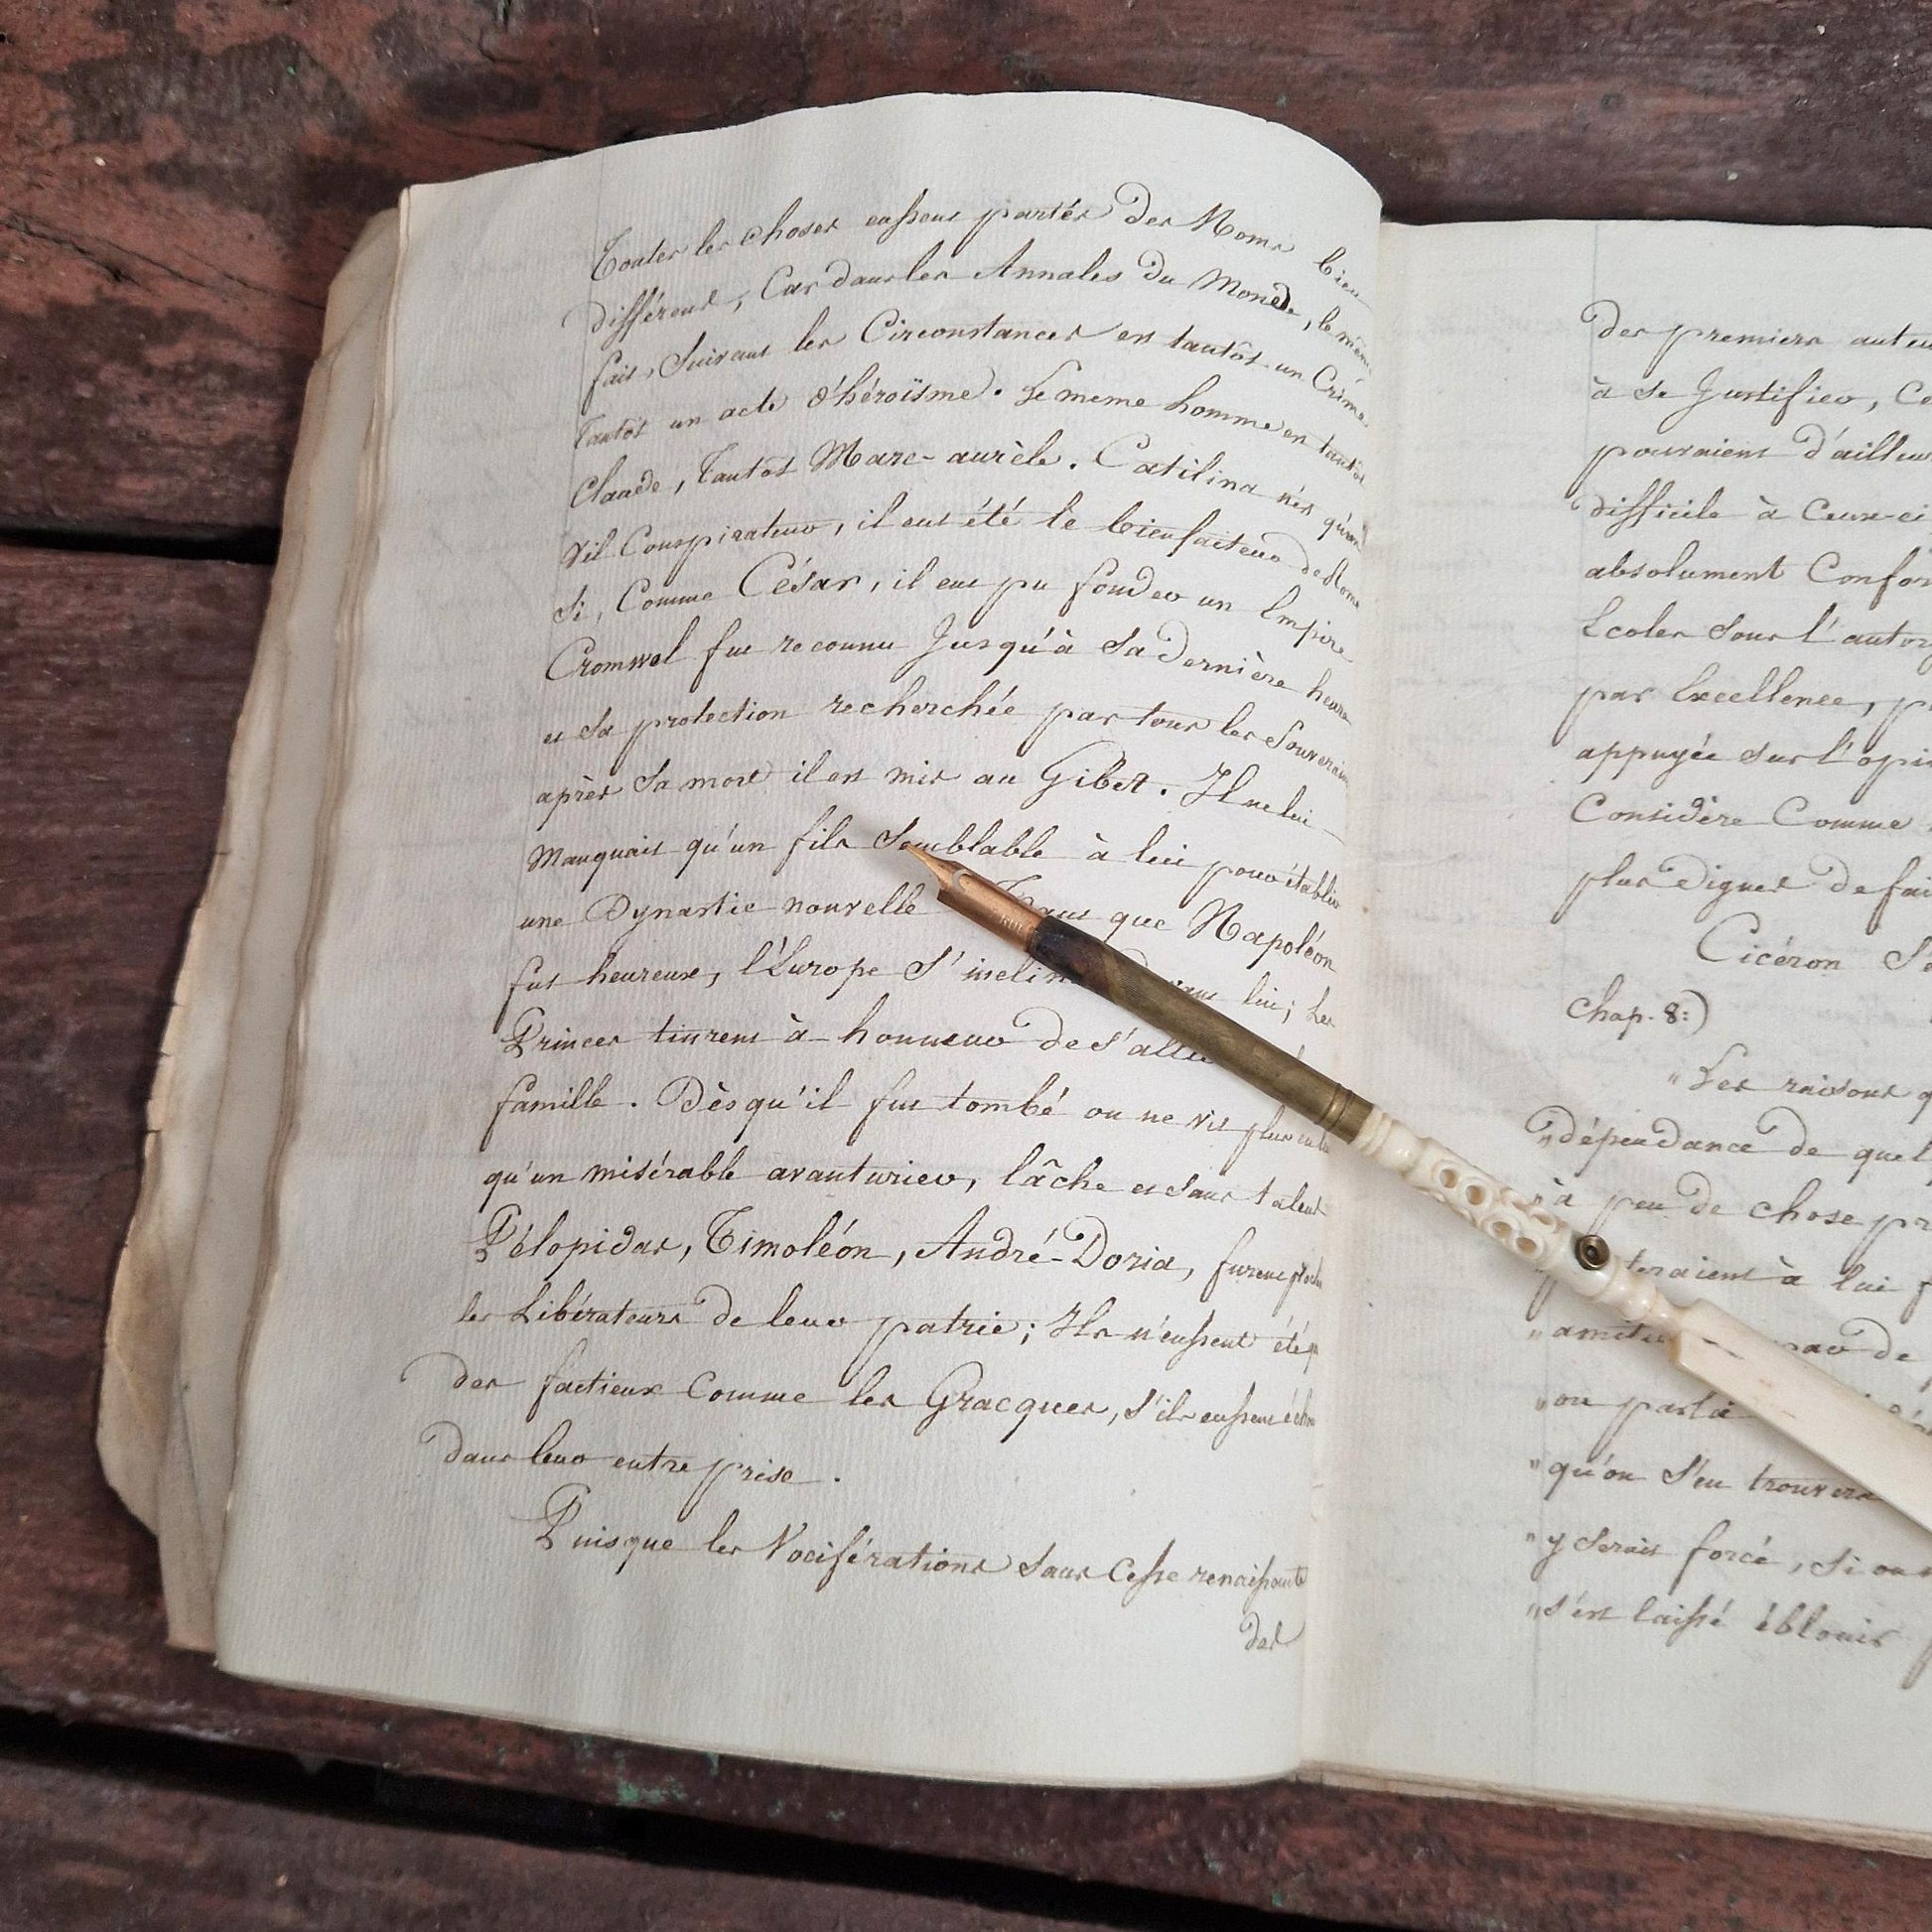 Toutes les choses eussent portés des Noms bien
différens, Car dans les Annales du Monde, le même
fait, Suivant les Circonstances est tantôt un Crime
Tantôt un acte d'héroïsme. Le meme homme est tantôt
Claude, Tantôt Marc-aurèle. Catilina n'est qu'un
Vil Conspirateur, il eut été le bienfaiteur de Rome
Si, Comme César, il eut pu fonder un Empire
Cromwel fut reconnu Jusqu'à Sa Dernière heure
et Sa protection recherchée par tous les Souverains
après Sa mort il est mis au Gibet. Il ne lui
Manquait qu'un fils Semblable à lui pour établir
une Dynastie nouvelle que Napoléon
fut heureux, l'Europe S' lui; Les
Princes tinrent à honneur de
famille. Dès qu'il fut tombé on ne vit plus
qu'un misérable avanturier, lâche et Sans talent
Pélopidas, Timoléon, André-Doria, furent
les Libérateurs de leur patrie; Ils n'eussent été
des factieux Comme les Gracques, S'ils eussent
dans leur entreprise.
Puisque les Vociférations Sans Cesse
des
des premiers
à se Justifier,
pouvaient
difficile à Ceux-ci
absolument
Ecoles Sous
par Excellence,
appuyée sur
Considère Comme
plus Dignes de
Cicéron
Chap. 8:)
"Les raisons
"dépendance de
à peu de chose
à lui
"
de
"on
"qu'on S'en
"y Serait forcé, Si
"s'est laissé éblouir